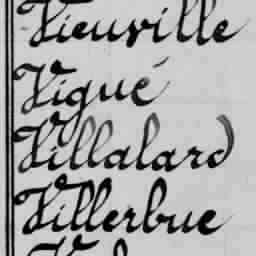 Vieuville
Vigué
Villalard
Villerbue